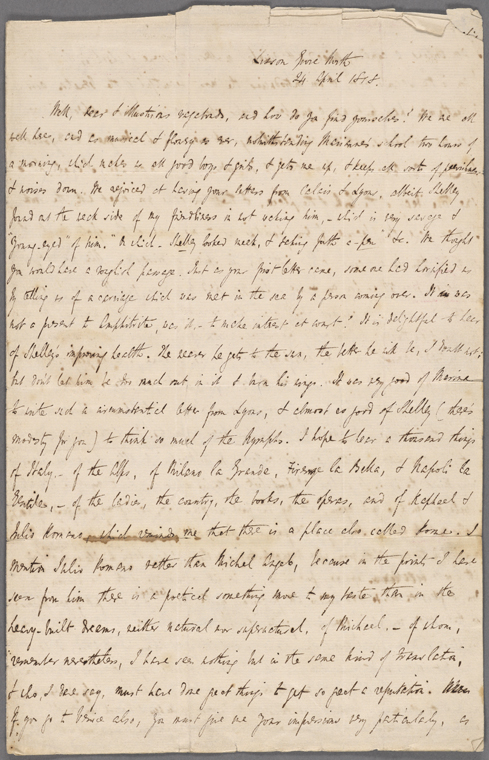 Lisson Grove North
24 April 1818.
Well, dear & illustrious vagabonds, and how do you find yourselves? We are all
well here, and as musical & flowery as ever, notwithstanding Marianne's school two hours of
a morning, which makes us all good boys & girls, & gets me up, & keeps all sorts of
& noises down. We rejoiced at having your letters from Calais & Lyons, albeit Shelley
found out the weak side of my friendliness in not waking him, – which is very savage &
"Grey-eyed of him." At which Shelley looked meek, & "taking forth a &c. We thought
you would have a roughish passage. But as your first letter came, some one had horrified us
by telling us of a carriage which was met in the sea by a person coming over. It was
not a present to Amphitrite, was it, – to make interest at court? It is delightful to hear
of Shelley's improving health. The nearer he gets to the sun, the better he will be, I doubt not;
but don't let him be too much out in it & burn his wings. It was very good of Marina
to write such a circumstantial letter from Lyons, & almost as good of Shelley (there's
modesty for you) to think so much of the Nymphs. I hope to hear a thousand things
of Italy – of the Alps, of Milano la Grande, Firenze la Bella, & Napoli la
Gentile, – of the ladies, the country, the books, the operas, and of Raphael &
Julio Romano, which reminds me that there is a place also called Rome. I
mention Julio Romano rather than Michel Angelo, because in the prints I have
seen from him there is a poetical something more to my taste than in the
heavy-built dreams, neither natural nor supernatural, of Michael, – of whom,
remember nevertheless, I have seen nothing but in the same kind of translation,
& who, I dare say, must have done great things to get so great a reputation. When
If you go to Venice also, you must give me your impressions very particularly, as